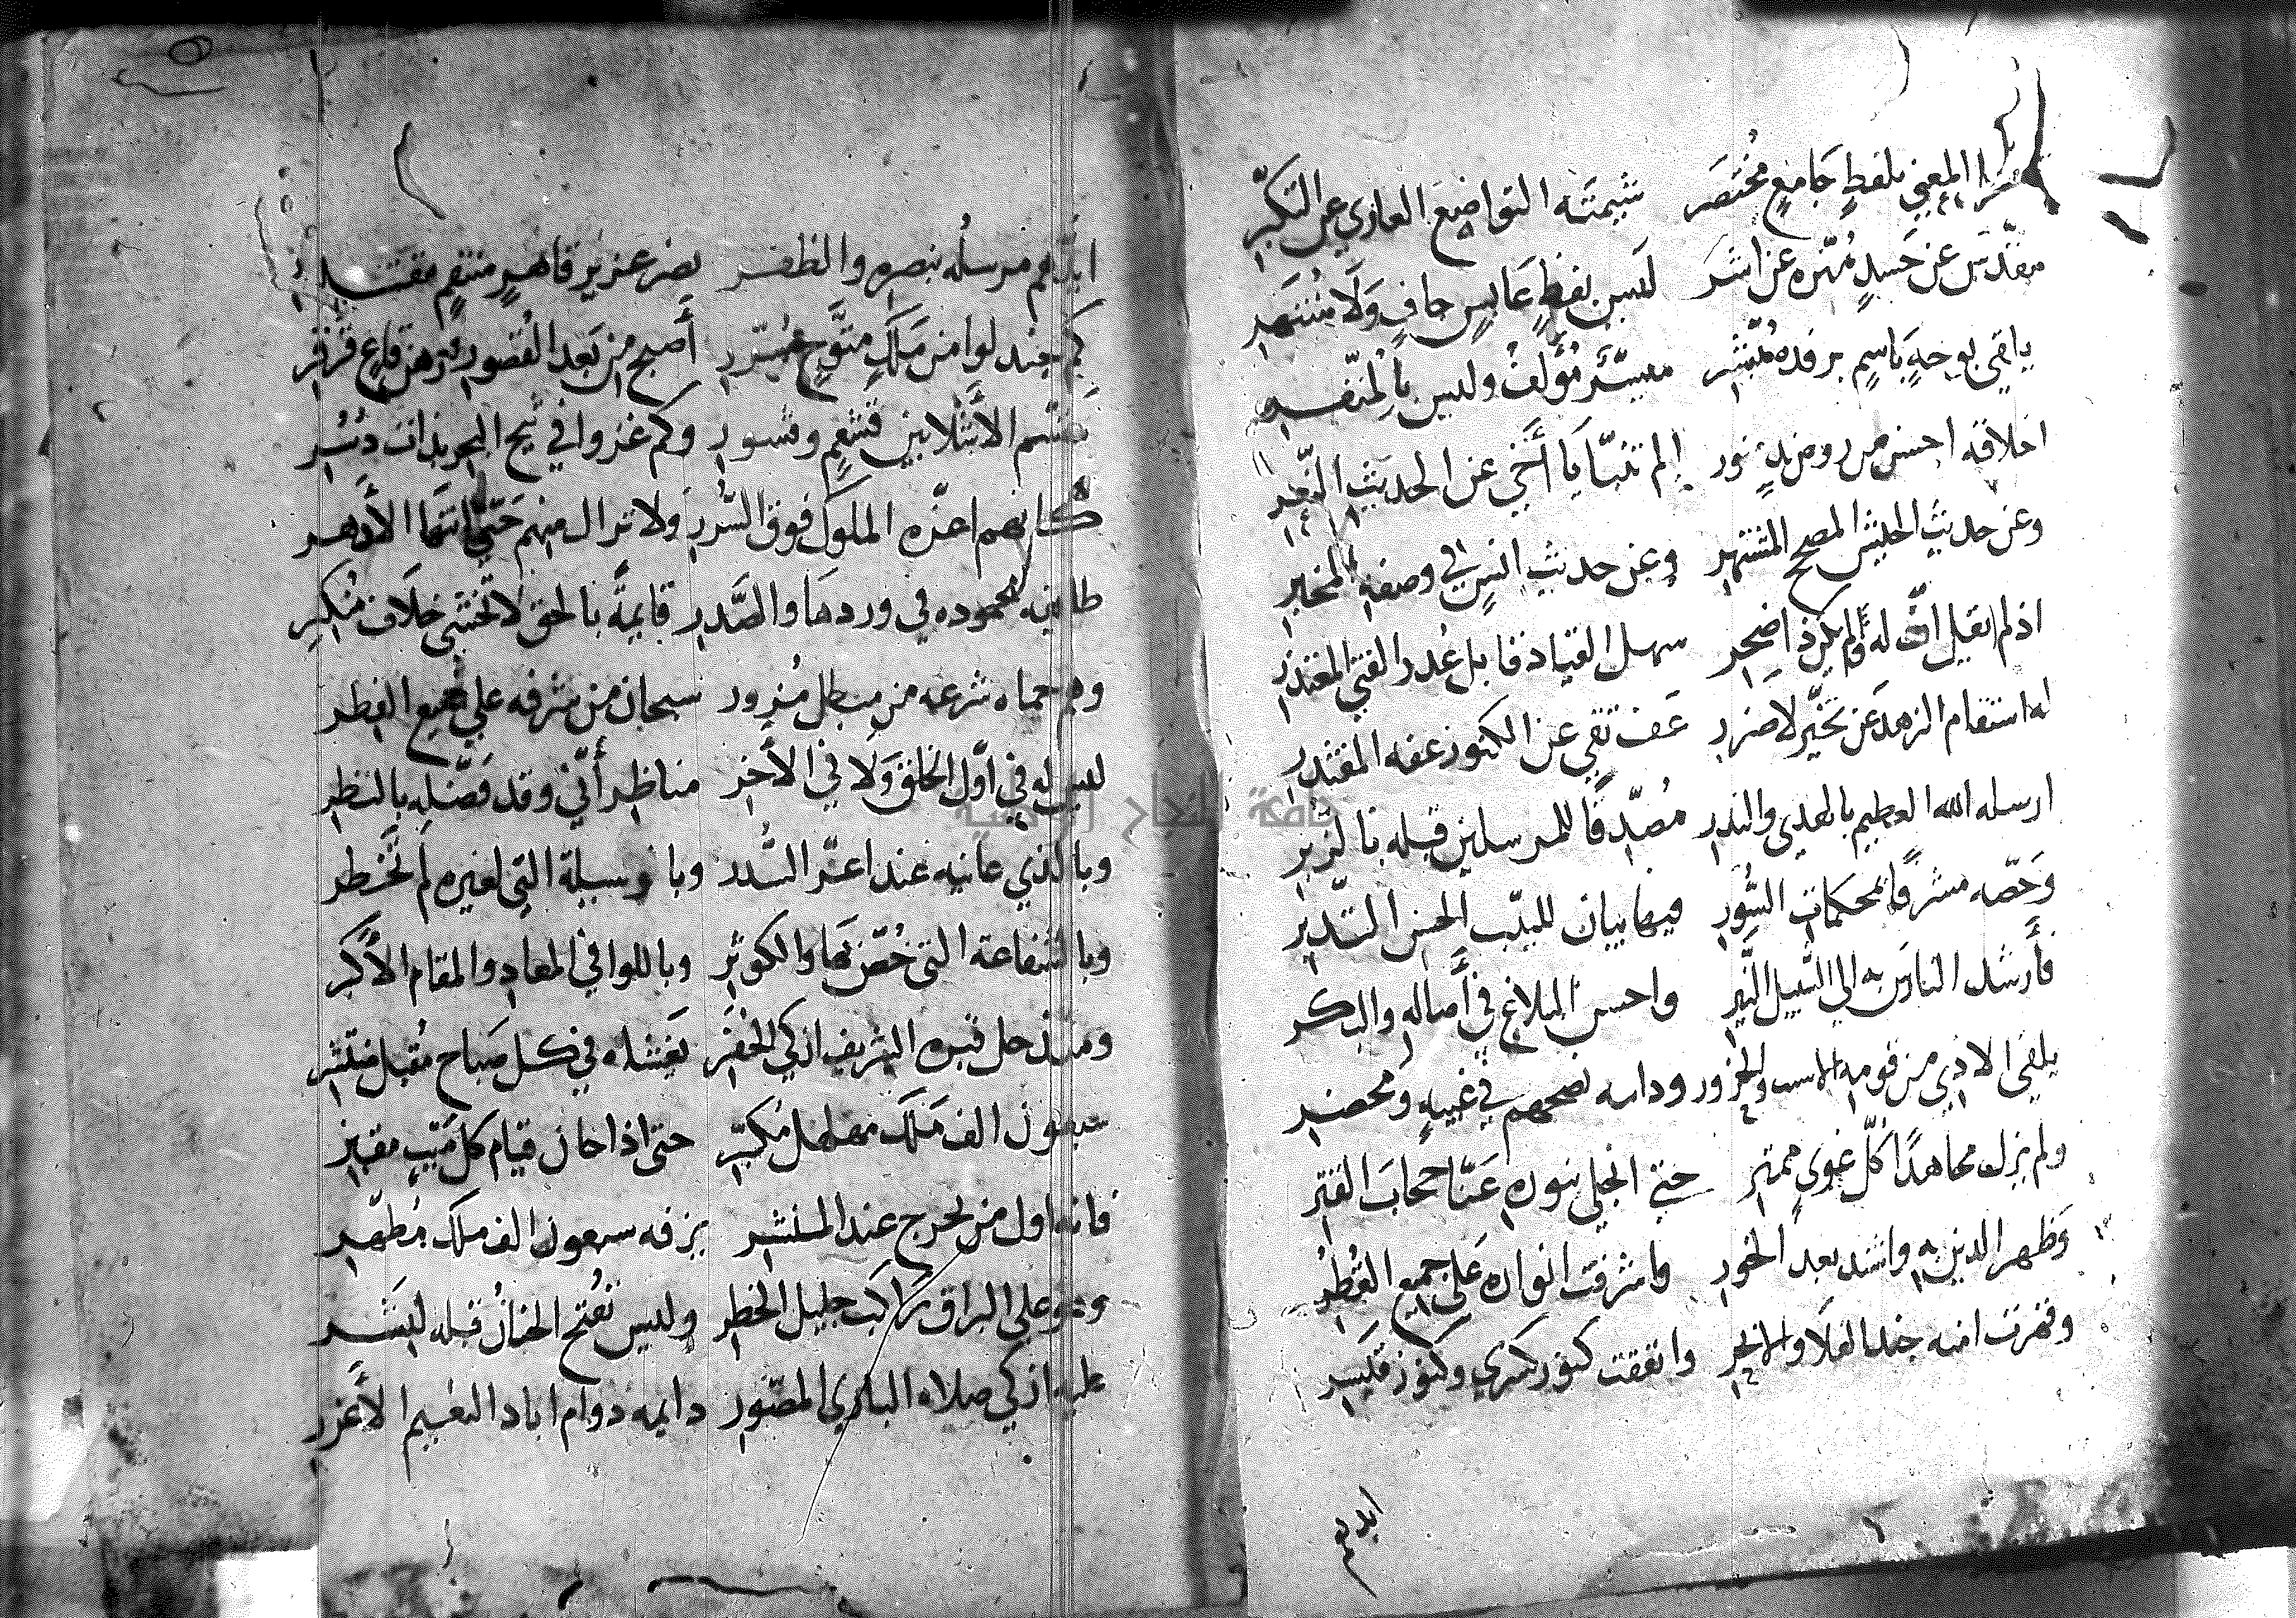 المعنى بلفظٍ جَامعٍ مُختَصَر شيمَتَه التواضع العازي عن التكبّرِ
مقدّس عن حَسدٍ مُنزه عن اشَر لَيس بفظٍ عَابسٍ جافٍ وَلَا مُنتهِرِ
يلقى بوجهٍ بَاسمٍ برفده مُبَشر ميسّر مُؤلف وليس بالمنفّر
اخلاقه احسن من روض ندٍ نور الم تنبّا يَا أخي عن الحديث النّغر
وعن حديث الحليش المصحح المشتهر وعن حديث انسٍ في وصفه المخبر
اذ لم يقل افٍّ له ولم يكن ذا ضجر سهل القياد قابل عُدر الفتى المعتذر
له استقام الزهد عَن تخيّر لا ضرر عَف تقي عن الكنوز عفه المقتدر
ارسله الله العظيم بالهدى والنذر مُصدّقًا للمرسلين قبله بالزبر
وَخصّه مشرفًا بمحكمات السُّوَر فيها بيان للبيب الحسن التدبر
فأرشد الناس به الى السّبيل النَّير واحسن البلاغ في أصاله والبكر
يلقى الاذى من قومه والخزور ودابه نصحهم في غيبةٍ ومحضر
ولم يزل مجاهدًا كلّ غوىٍ ممتر حتى انجلى بنوره عَنّا سحَابَ القتر
وَظهر الدين به واشتد بعد الخور واشرقت انواره عَلى جميع القُطُر
وقهرت امته جند الفلا والابحر وانفقت كنوز كسرى وكنوز قيصر
ايدهم
ايّدهم مرسلُه بنصره والظفر نصر عزيز قاهرٍ منتقمٍ مقتدر
كم جندلوا من مَلكٍ متوَّجٍ مُسوّر أصبح من بَعد القصور رهن قاعٍ قرقر
مقسّم الأشلا بين قشعمٍ وقسور وكم غزوا في ثبج البحر بذات دُسُر
كانهم اعزّه الملوك فوق السُّرر ولا تزال منهم حَتى انتها الأدهر
طايفه محموده في وردهَا والصَّدر قايمةً بالحق لا تخشى خلَاف مُنكر
وهم حماه شرعه من مبطل مُزور سبحان من شرفه على جميع الفطر
ليس له في اوّل الخلق وَلا في الأخر مناظر أنّى وقد فَضّله بالنظر
وبالذي عاينه عند اعزّ السُّدر وبالوسيلة التي لغيره لم تخطر
وبالشفاعة التي خُصّ بهَا والكوثر وباللوا في المعاد والمقام الأكبر
ومذ حل قبره الشريف ازكى الحفَر تغشاه في كل صبَاح مُقبل منتشر
سبعون الف مَلك مهلهل مُكبّر حتى اذا حان قيام كل مَيّتٍ مقبر
فانه اول من يخرج عند المنشر يزفه سبعون الف ملك مُطهّر
وهو على البراق راكبَ جليل الخطر وليس تُفتح الجنانُ قبله لبَشَر
عليه ازكى صلاه الباري المصوّر دايمه دوام اباد النعيم الأغزر